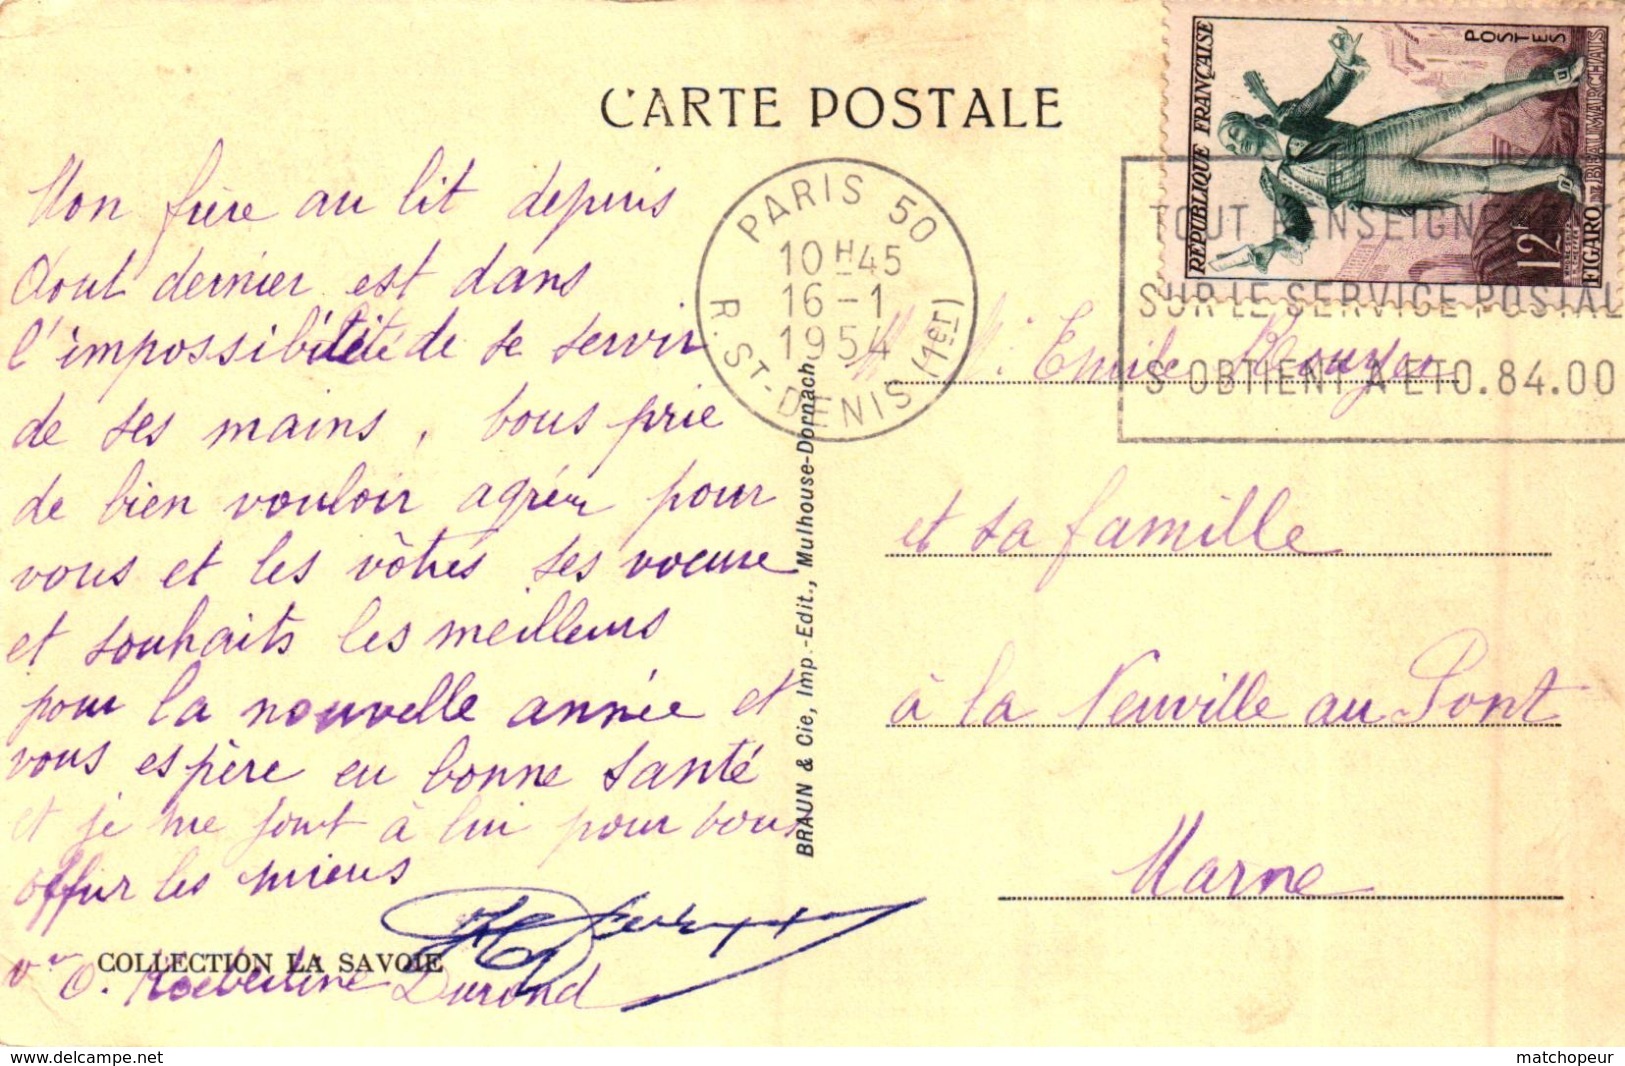 CARTE POSTALE
Mon frère au lit depuis
Aout dernier est dans
l'impossibilité de se servir
de ses mains, vous prie
de bien vouloir agréer pour
vous et les vôtres ses voeux
et souhaits les meilleurs
pour la nouvelle année et
vous espère en bonne santé
et je me joint à lui pour vous
offrir les miens
COLLECTION LA SAVOIE
Durand
BRAUN & Cie, Imp.-Edit., Mulhouse-Dornach
PARIS 50
10H45
16-1
1954
R. ST-DENIS (1er)
REPUBLIQUE FRANÇAISE
POSTES
12F
FIGARO DE BEAUMARCHAIS
TOUT RENSEIGNEMENT
SUR LE SERVICE POSTAL
S'OBTIENT A ETO.84.00
Emile
et sa famille
à la Neuville au Pont
Marne
delcampe.net
matchopeur